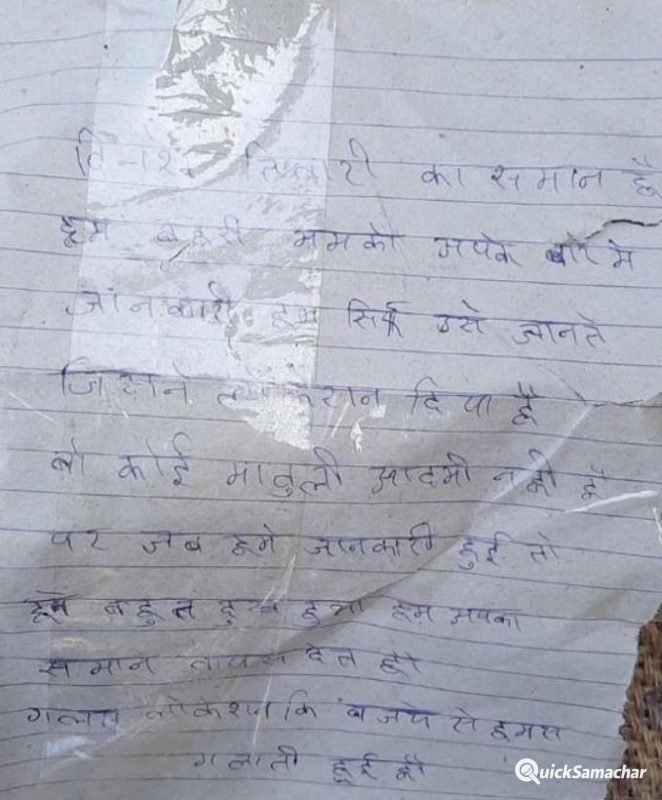 दिनेश तिवारी का समान है
हम बहरी हमको आपके बारे मे
जानकारी हम सिर्फ उसे जानते
जिसने लोकेशन दिया है
वो कोई मामुली आदमी नही है
पर जब हमे जानकारी हुई तो
हमे बहुत दुख हुआ हम आपका
समान वापस देत है
गलत लोकेशन कि वजये से हमसे
गलाती हुई है
QuickSamachar